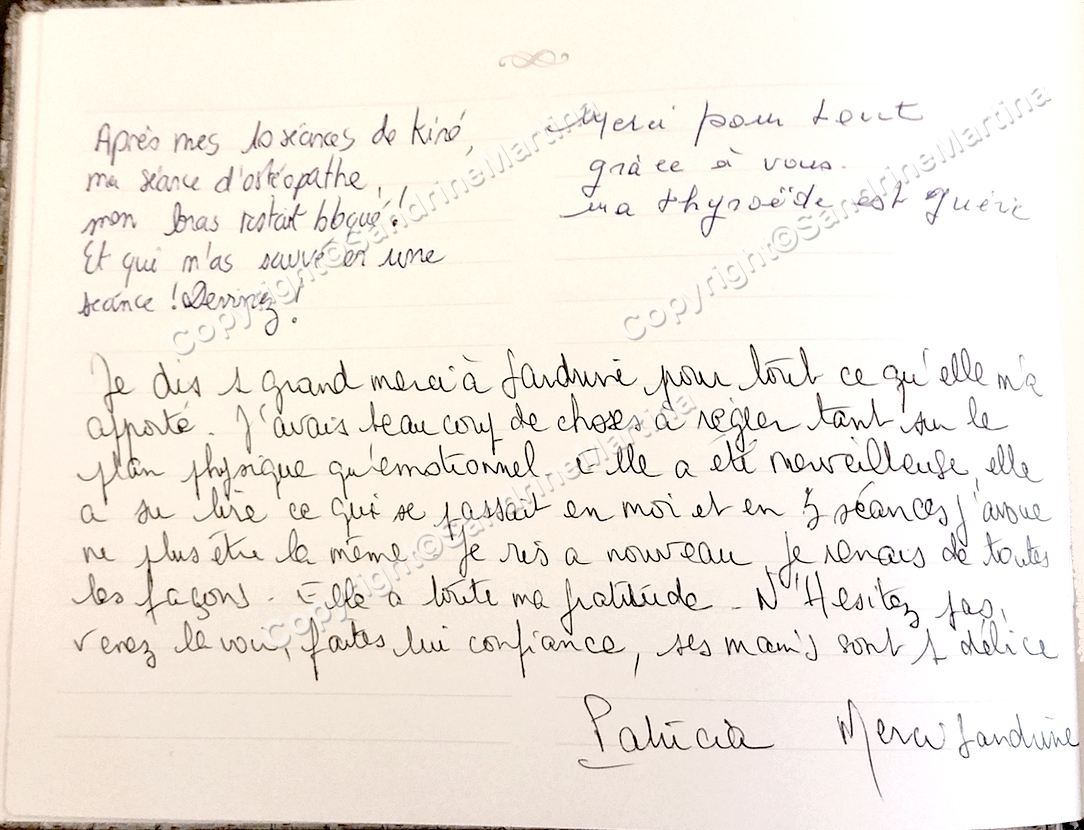 Après mes 10 séances de Kiné,
ma séance d'ostéopathe,
mon bras restait bloqué !!
Et qui m'as sauvé en une
séance ! Devinez !
Merci pour tout
grâce à vous.
ma thyroëde est guérie
Je dis 1 grand merci à Sandrine pour tout ce qu'elle m'a
apporté. J'avais beaucoup de choses à régler tant sur le
plan physique qu'émotionnel. Elle a été merveilleuse, elle
a su lire ce qui se passait en moi et en 3 séances j'avoue
ne plus être la même. Je ris a nouveau. Je renais de toutes
les façons. Elle a toute ma gratitude. N'Hesitez pas,
venez la voir, faites lui confiance, ses mains sont 1 délice
Patricia Merci Sandrine
Copyright©SandrineMartina
Copyright©SandrineMartina
Copyright©SandrineMartina